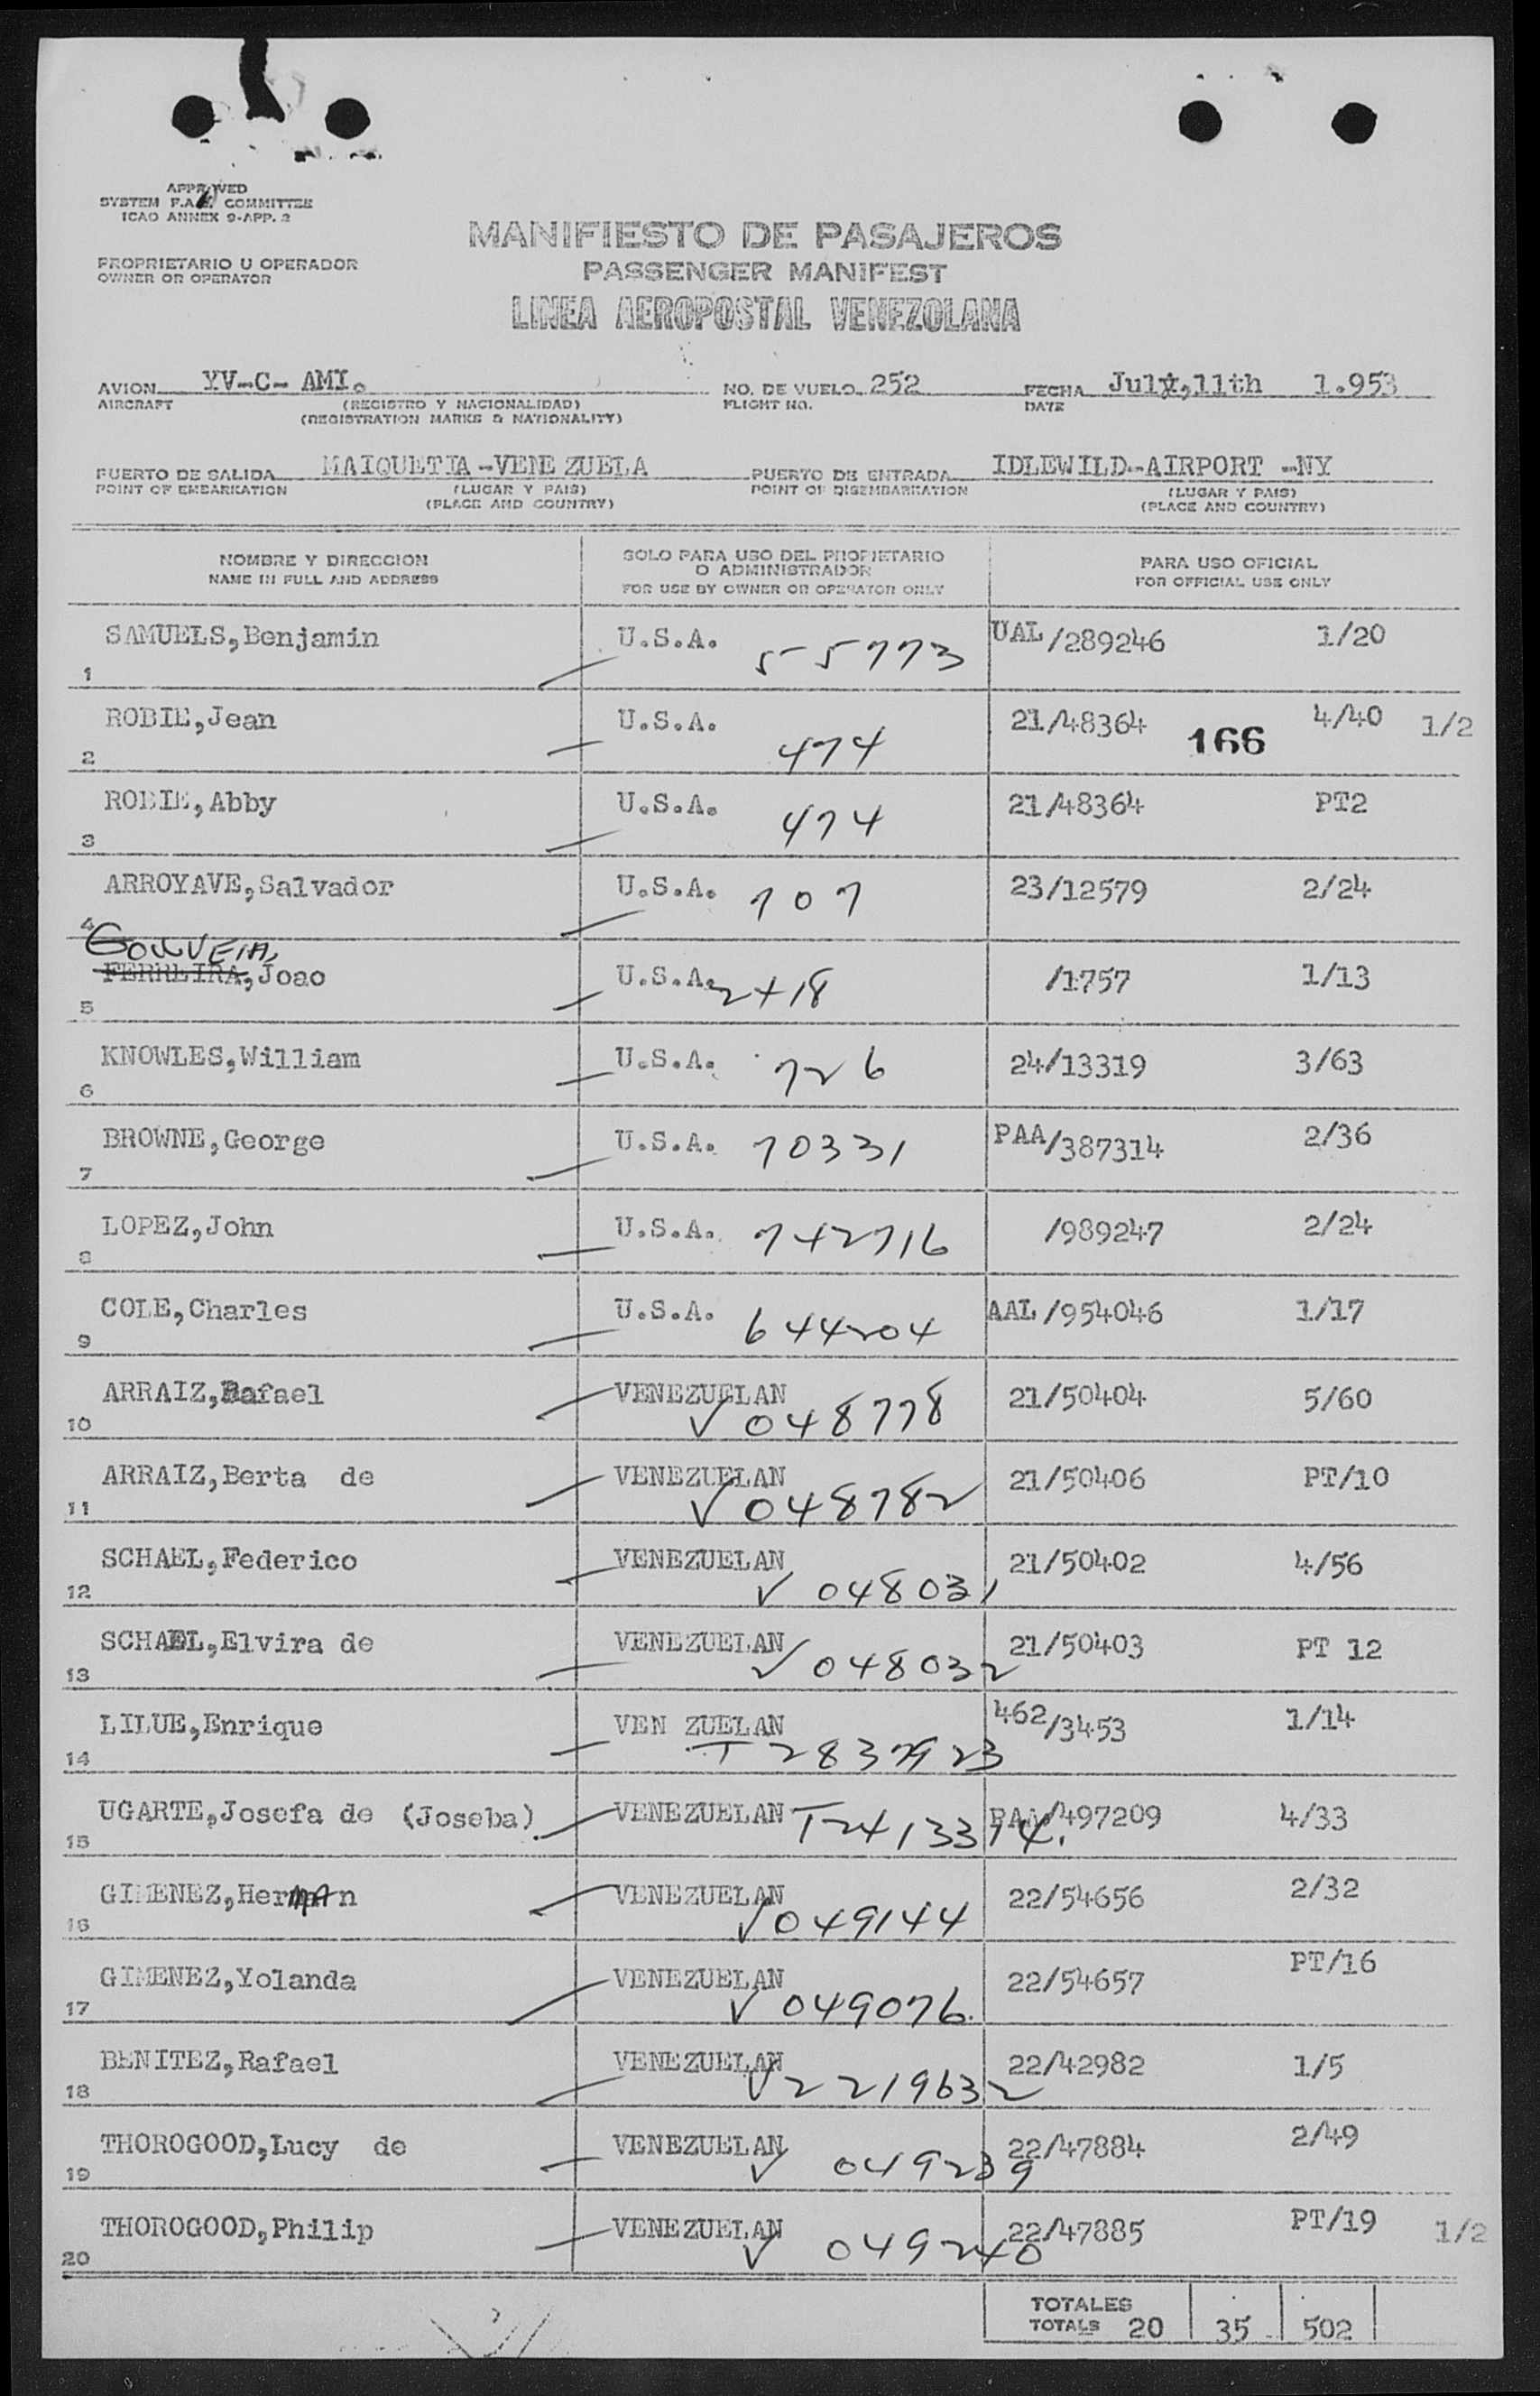 APPROVED
SYSTEM F.A.L. COMMITTEE
ICAO ANNEX 9-APP. 2
MANIFIESTO DE PASAJEROS
PROPRIETARIO U OPERADOR
OWNER OR OPERATOR
PASSENGER MANIFEST
LINEA AEROPOSTAL VENEZOLANA
AVION YV-C- AMI. NO. DE VUELO 252 FECHA July,11th 1.953
AIRCRAFT (REGISTRO Y NACIONALIDAD) FLIGHT NO. DATE
(REGISTRATION MARKS & NATIONALITY)
PUERTO DE SALIDA MAIQUETIA-VENEZUELA PUERTO DE ENTRADA IDLEWILD-AIRPORT -NY
POINT OF EMBARKATION (LUGAR Y PAIS) POINT OF DISEMBARKATION (LUGAR Y PAIS)
(PLACE AND COUNTRY) (PLACE AND COUNTRY)
NOMBRE Y DIRECCION SOLO PARA USO DEL PROPIETARIO PARA USO OFICIAL
NAME IN FULL AND ADDRESS O ADMINISTRADOR FOR OFFICIAL USE ONLY
FOR USE BY OWNER OR OPERATOR ONLY
SAMUELS,Benjamin U.S.A. 55773 UAL/289246 1/20
1
ROBIE,Jean U.S.A. 474 21/48364 166 4/40 1/2
2
ROBIE,Abby U.S.A. 474 21/48364 PT2
3
ARROYAVE,Salvador U.S.A. 707 23/12579 2/24
4
GOUVEIA,
FERREIRA,Joao U.S.A. 2418 /1757 1/13
5
KNOWLES,William U.S.A. 726 24/13319 3/63
6
BROWNE,George U.S.A. 70331 PAA/387314 2/36
7
LOPEZ,John U.S.A. 742716 /989247 2/24
8
COLE,Charles U.S.A. 644204 AAL/954046 1/17
9
ARRAIZ,Rafael VENEZUELAN 21/50404 5/60
10 V 048778
ARRAIZ,Berta de VENEZUELAN 21/50406 PT/10
11 V 048782
SCHAEL,Federico VENEZUELAN 21/50402 4/56
12 V 048031
SCHAEL,Elvira de VENEZUELAN 21/50403 PT 12
13 V 048032
LILUE,Enrique VEN ZUELAN 462/3453 1/14
14
UGARTE,Josefa de (Joseba) VENEZUELAN T2413374. PAA/497209 4/33
15
GIMENEZ,Herman VENEZUELAN 22/54656 2/32
16 V 049144
GIMENEZ,Yolanda VENEZUELAN 22/54657 PT/16
17 V 049076.
BENITEZ,Rafael VENEZUELAN 22/42982 1/5
18 V 2219632
THOROGOOD,Lucy de VENEZUELAN 22/47884 2/49
19 V 049239
THOROGOOD,Philip VENEZUELAN 22/47885 PT/19 1/2
20 V 049240
TOTALES
TOTALS 20 35 502